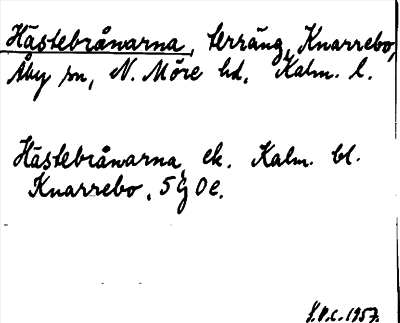 Hästebrånarna, terräng, Knarrebo,
Åby sn, N. Möre hd, Kalm. l.
Hästebrånarna, ek. Kalm. bl.
Knarrebo, 5G 0e.
1957.